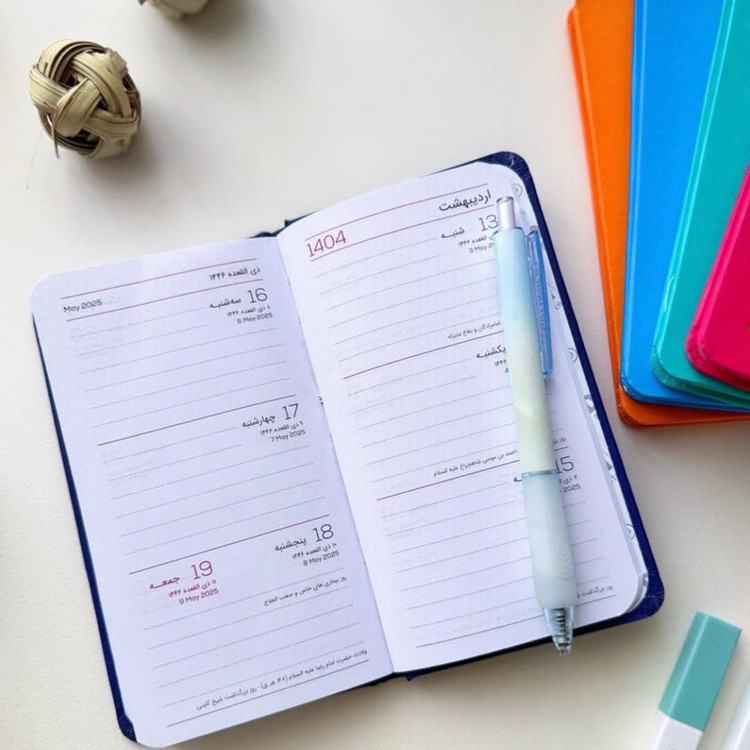 اردیبهشت
1404
13 شنبه
3 May
یکشنبه
احمد بن موسی شاهچراغ علیه السلام
15
2025
ذی القعده ۱۴۴۶
May 2025
16 سه‌شنبه
۸ ذی القعده ۱۴۴۶
6 May 2025
17 چهارشنبه
۹ ذی القعده ۱۴۴۶
7 May 2025
18 پنجشنبه
۱۰ ذی القعده ۱۴۴۶
8 May 2025
روز بیماری های خاص و صعب العلاج
19 جمعه
۱۱ ذی القعده ۱۴۴۶
9 May 2025
ولادت حضرت امام رضا علیه السلام (۱۴۸ هـ ق) - روز بزرگداشت شیخ کلینی